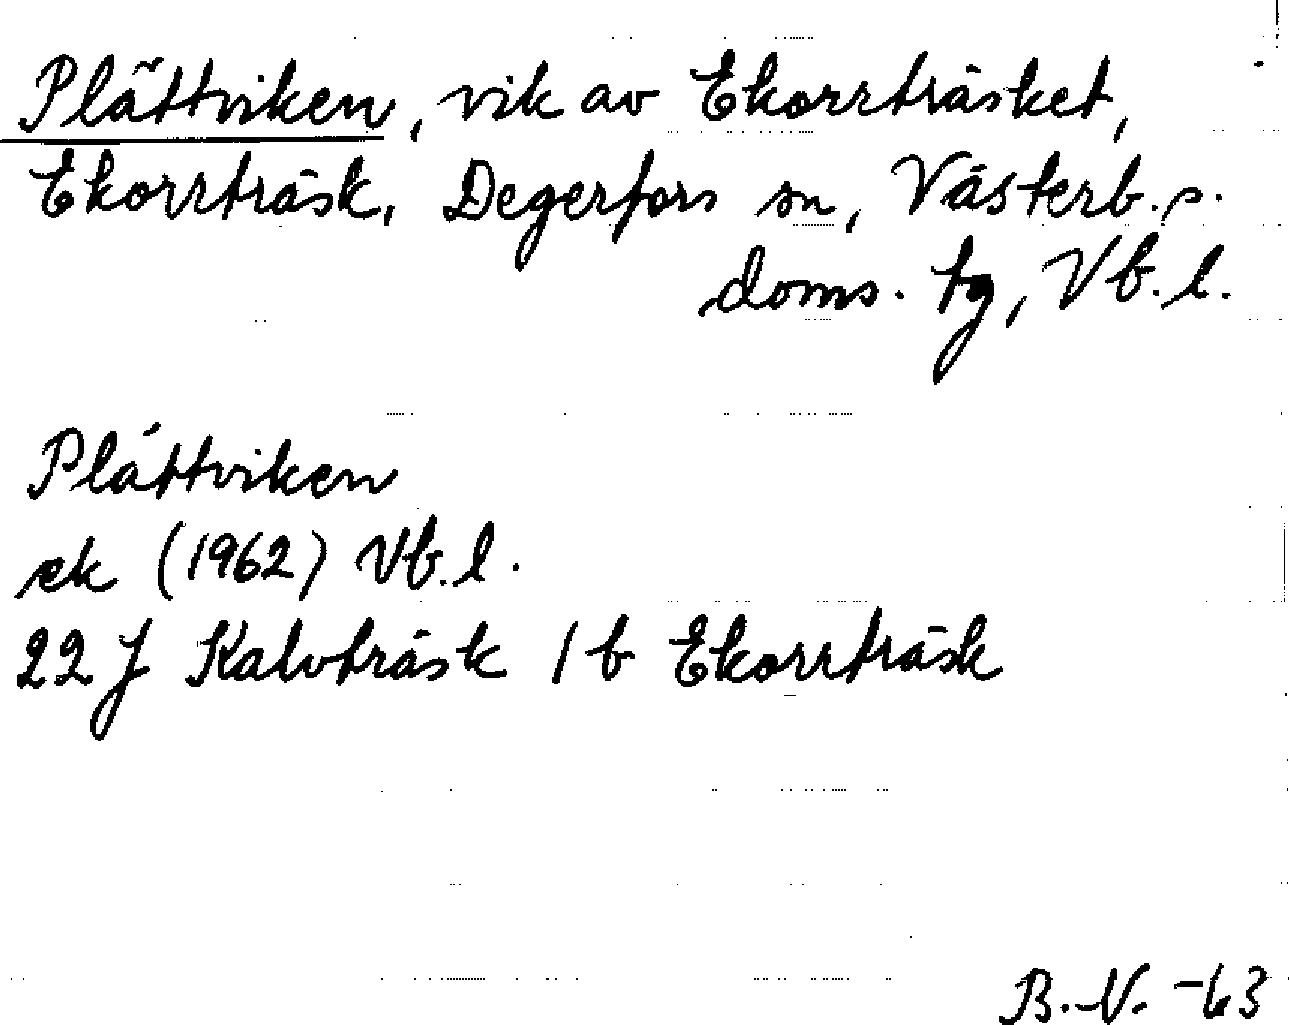 Plättviken, vik av Ekorrträsket,
Ekorrträsk, Degerfors sn, Västerb. s.
doms. tg, Vb. l.
Plättviken
ek (1962) Vb. l.
22 J Kalvträsk 1 b Ekorrträsk
B.N. -63